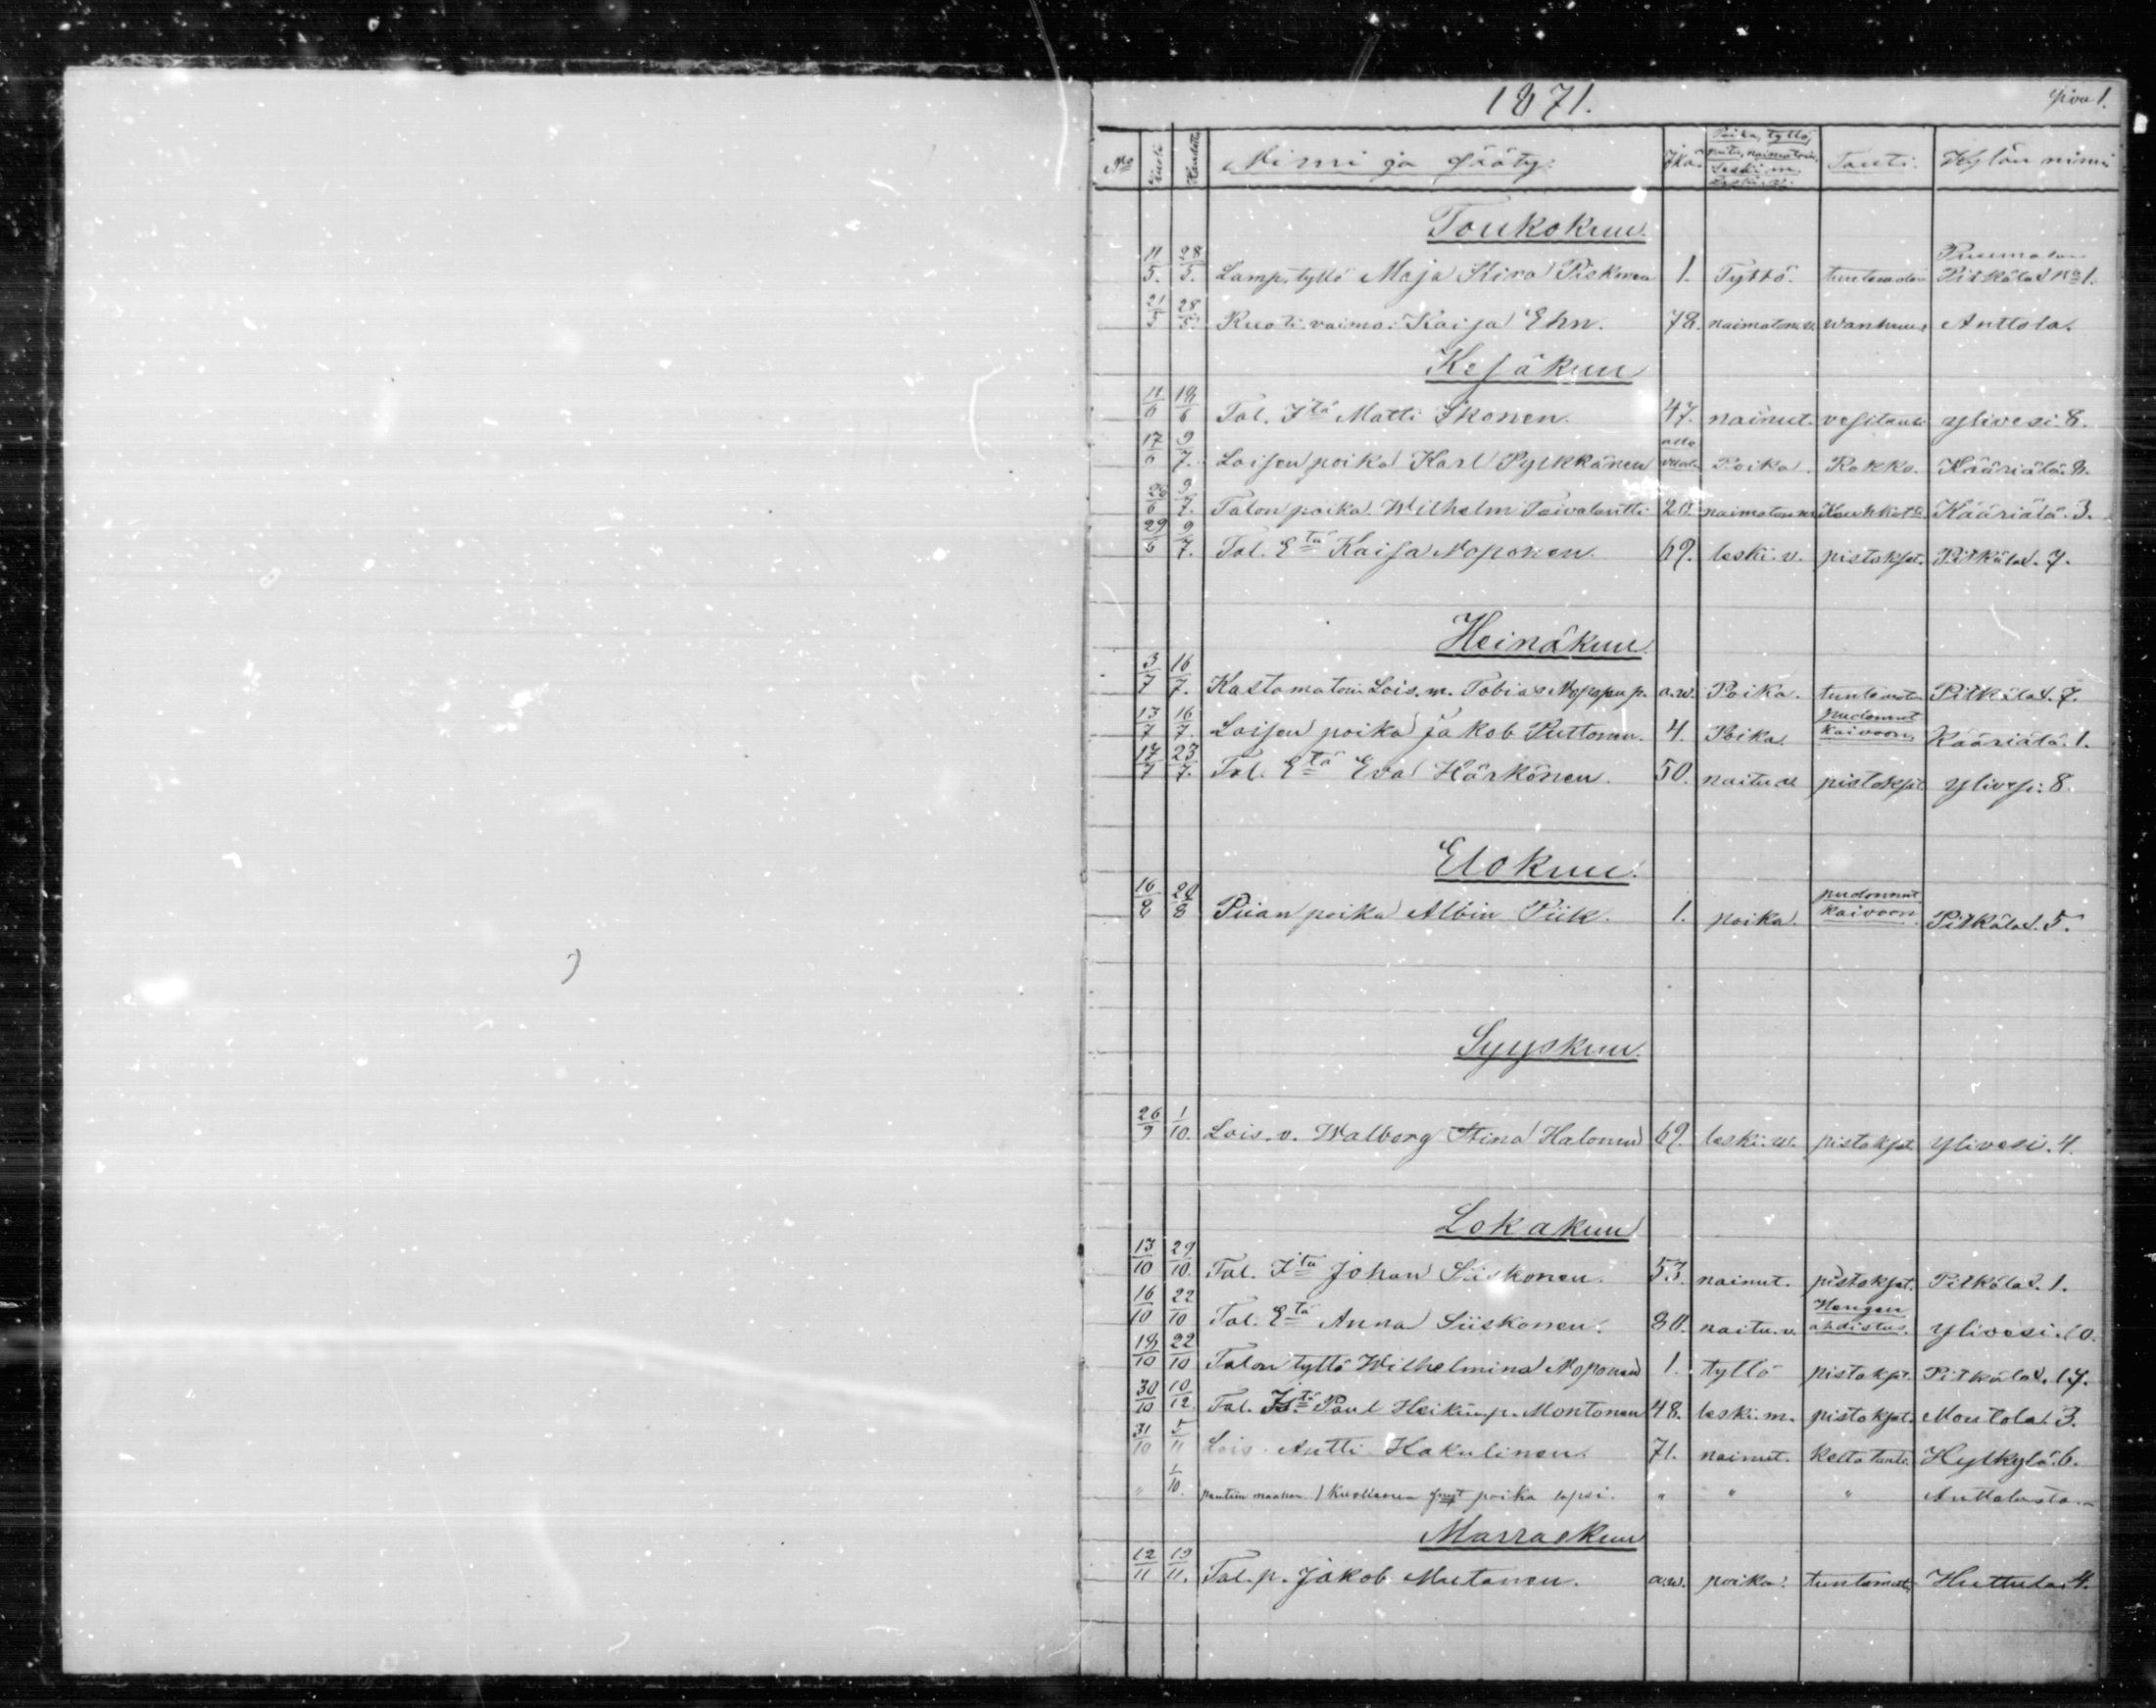 1871.
Sivu 1.
No Kuoli Haudattu Nimi ja sääty. Ikä. Poika, tyttö, naitu, naimatoin, Leski m. Leski v. Tauti. Kylän nimi
Toukokuu.
11/5. 28/5. Lamp. tyttö Maja Stina Piskonen 1. Tyttö. tuntematoin Puumalan Pitkälax No 1.
21/5 28/5. Ruoti vaimo: Kaisa Ehn. 78. naimatoin v. wanhuus Anttola.
Kesäkuu
11/6 18/6 Tal. Itä Matti Ikonen. 47. nainut. vesitauti ylivesi. 8.
17/6 9/7. Loisen poika Karl Pylkkänen alla vuod. Poika. Rokko. Kääriälä. 8.
26/6 9/7. Talon poika Wilhelm Taivalantti 20. naimatoin m. Keuhkot. Kääriälä. 3.
29/6 9/7. Tal. Etä Kaisa Noponen. 69. leski. v. pistokset. Pitkälax. 7.
Heinäkuu
3/7 16/7. Kastamatoin Lois. m. Tobias Noposen p. a.w. Poika. tuntematoin Pitkälax. 7.
13/7 16/7. Loisen poika Jakob Puttonen. 4. Poika. pudonnut kaivoon. Kääriälä. 1.
17/7 23/7. Tal. Etä Eva Härkönen. 50. naitu w pistokset ylivesi: 8.
Elokuu.
16/8 20/8 Piian poika Albin Piik. 1. poika. pudonnut kaivoon. Pitkälax. 5.
Syyskuu.
26/9 1/10. Lois. v. Walborg Stina Halonen 69. leski. w. pistokset ylivesi. 4.
Lokakuu
13/10 29/10. Tal. Itä Johan Siiskonen. 53. nainut. pistokset. Pitkälax. 1.
16/10 22/10 Tal. Etä Anna Siiskonen. 80. naitu. v. Hengen ahdistus. ylivesi. 10.
18/10 22/10 Talon tyttö Wilhelmina Noponen 1. tyttö pistokset Pitkälax. 17.
30/10 10/12 Tal. Itä Paul Heikinp. Montonen 48. leski. m. pistokset. Montola. 3.
31/10 5/11 Lois. Antti Hakulinen. 71. nainut. kelta tauti. Hylkylä. 6.
" 1/10. pantiin maahan 1 kuollunna synt poika lapsi. " " " Anttolasta. —
Marraskuu
12/11 19/11. Tal. p. Jakob Mutanen. a.w. poika. tuntematoin Huttula. 4.